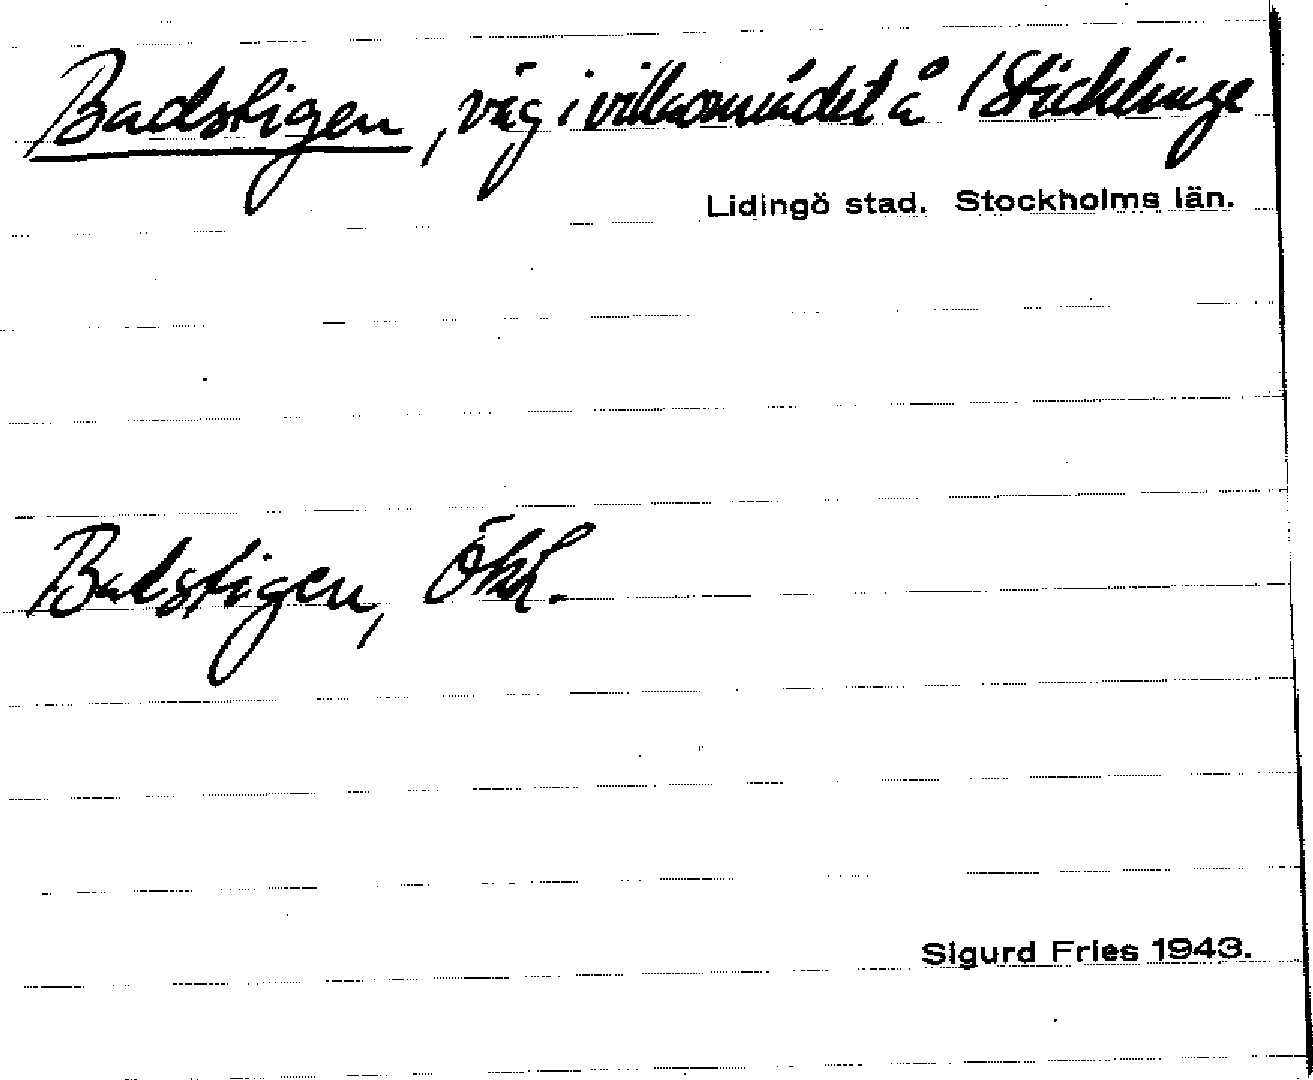 Badstigen, väg i villaområdet å /Sticklinge
Lidingö stad. Stockholms län.
Badstigen, Ökk.
Sigurd Fries 1943.